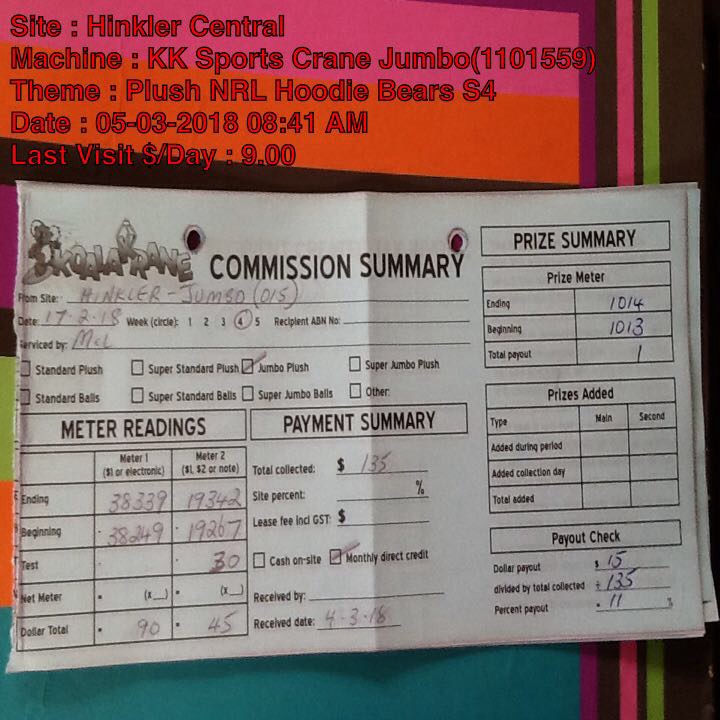 Site : Hinkler Central
Machine : KK Sports Crane Jumbo(1101559)
Theme : Plush NRL Hoodie Bears S4
Date : 05-03-2018 08:41 AM
Last Visit $/Day : 9.00
KOALA KRANE COMMISSION SUMMARY
From Site: HINKLER - JUMBO (015)
Date: 17-2-18 Week (circle): 1 2 3 4 5 Recipient ABN No:
Serviced by: McL
Standard Plush Super Standard Plush Jumbo Plush Super Jumbo Plush
Standard Balls Super Standard Balls Super Jumbo Balls Other:
METER READINGS
Meter 1 Meter 2
($1 or electronic) ($1, $2 or note)
Ending 38339 19342
Beginning 38249 19267
Test 30
Net Meter = (x__) = (x__)
Dollar Total = 90 = 45
PAYMENT SUMMARY
Total collected: $ 135
Site percent: %
Lease fee incl GST: $
Cash on-site Monthly direct credit
Received by:
Received date: 4-3-18
PRIZE SUMMARY
Prize Meter
Ending 1014
Beginning 1013
Total payout 1
Prizes Added
Type Main Second
Added during period
Added collection day
Total added
Payout Check
Dollar payout $ 15
divided by total collected ÷ 135
Percent payout = 11 %